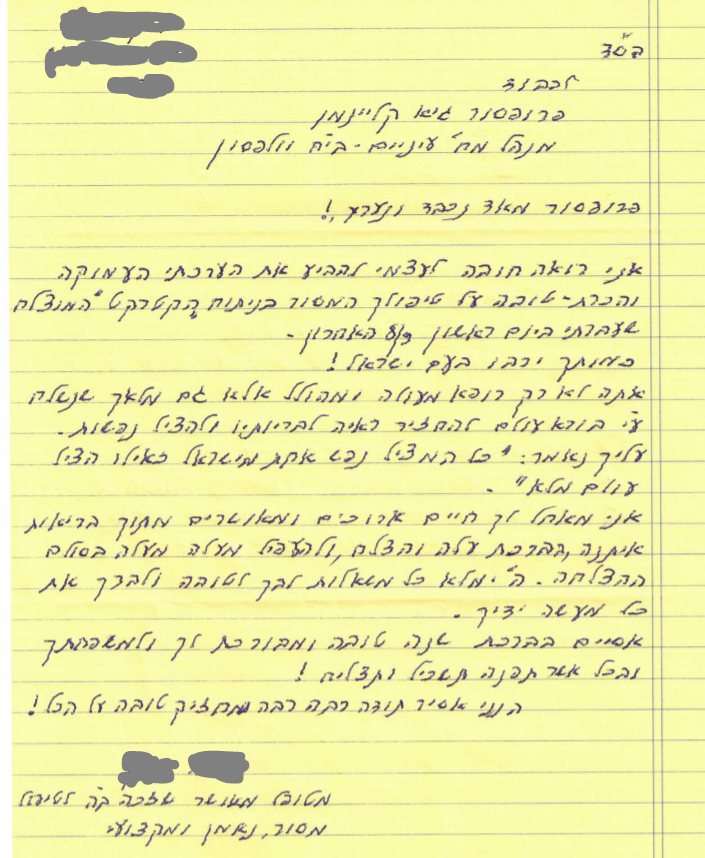 בס"ד
לכבוד
פרופסור גיא קליינמן
מנהל מח' עיניים - ביה"ח וולפסון
פרופסור מאד נכבד ונערץ,!
אני רואה חובה לעצמי להביע את הערכתי העמוקה
והכרת-טובה על טיפולך המסור בניתוח הקטרקט "המוצלח
שעברתי ביום ראשון האחרון -
כמותך ירבו בעם ישראל!
אתה לא רק רופא מעולה ומהולל אלא גם מלאך שנשלח
ע"י בורא עולם להחזיר ראיה לבריותיו ולהציל נפשות.
עליך נאמר: "כל המציל נפש אחת מישראל כאילו הציל
עולם מלא".
אני מאחל לך חיים ארוכים ומאושרים מתוך בריאות
איתנה, בברכת עלה והצלח, ולהעפיל מעלה מעלה בסולם
ההצלחה. ה' ימלא כל משאלות לבך לטובה ולברך את
כל מעשה ידיך.
אסיים בברכת שנה טובה ומבורכת לך ולמשפחתך
ובכל אשר תפנה תשכיל ותצליח!
הנני אסיר תודה רבה רבה ומחזיק טובה על הכל!
מטופל מאושר שזכה ב"ה לטיפול
מסור, נאמן ומקצועי